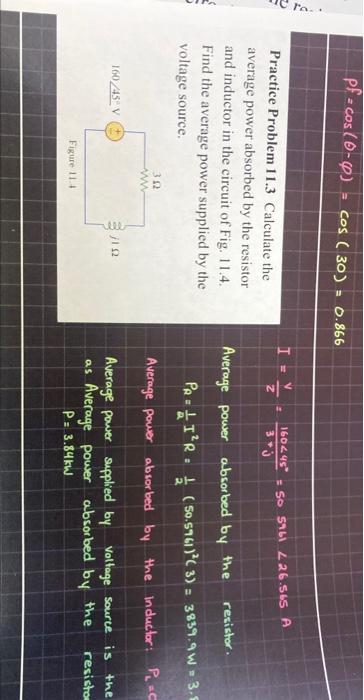 pf = cos(θ-φ) = cos (30) = 0.866
Practice Problem 11.3 Calculate the
average power absorbed by the resistor
and inductor in the circuit of Fig. 11.4.
Find the average power supplied by the
voltage source.
3 Ω
160/45° V
+
-
j1 Ω
Figure 11.4
I = V/Z = 160∠45°/3+j = 50.5961 ∠26.565 A
Average power absorbed by the resistor:
PR = 1/2 I²R = 1/2 (50.5961)²(3) = 3839.9W = 3.
Average power absorbed by the inductor: PL =
Average power supplied by voltage source is the
as Average power absorbed by the resisto
P = 3.84kW